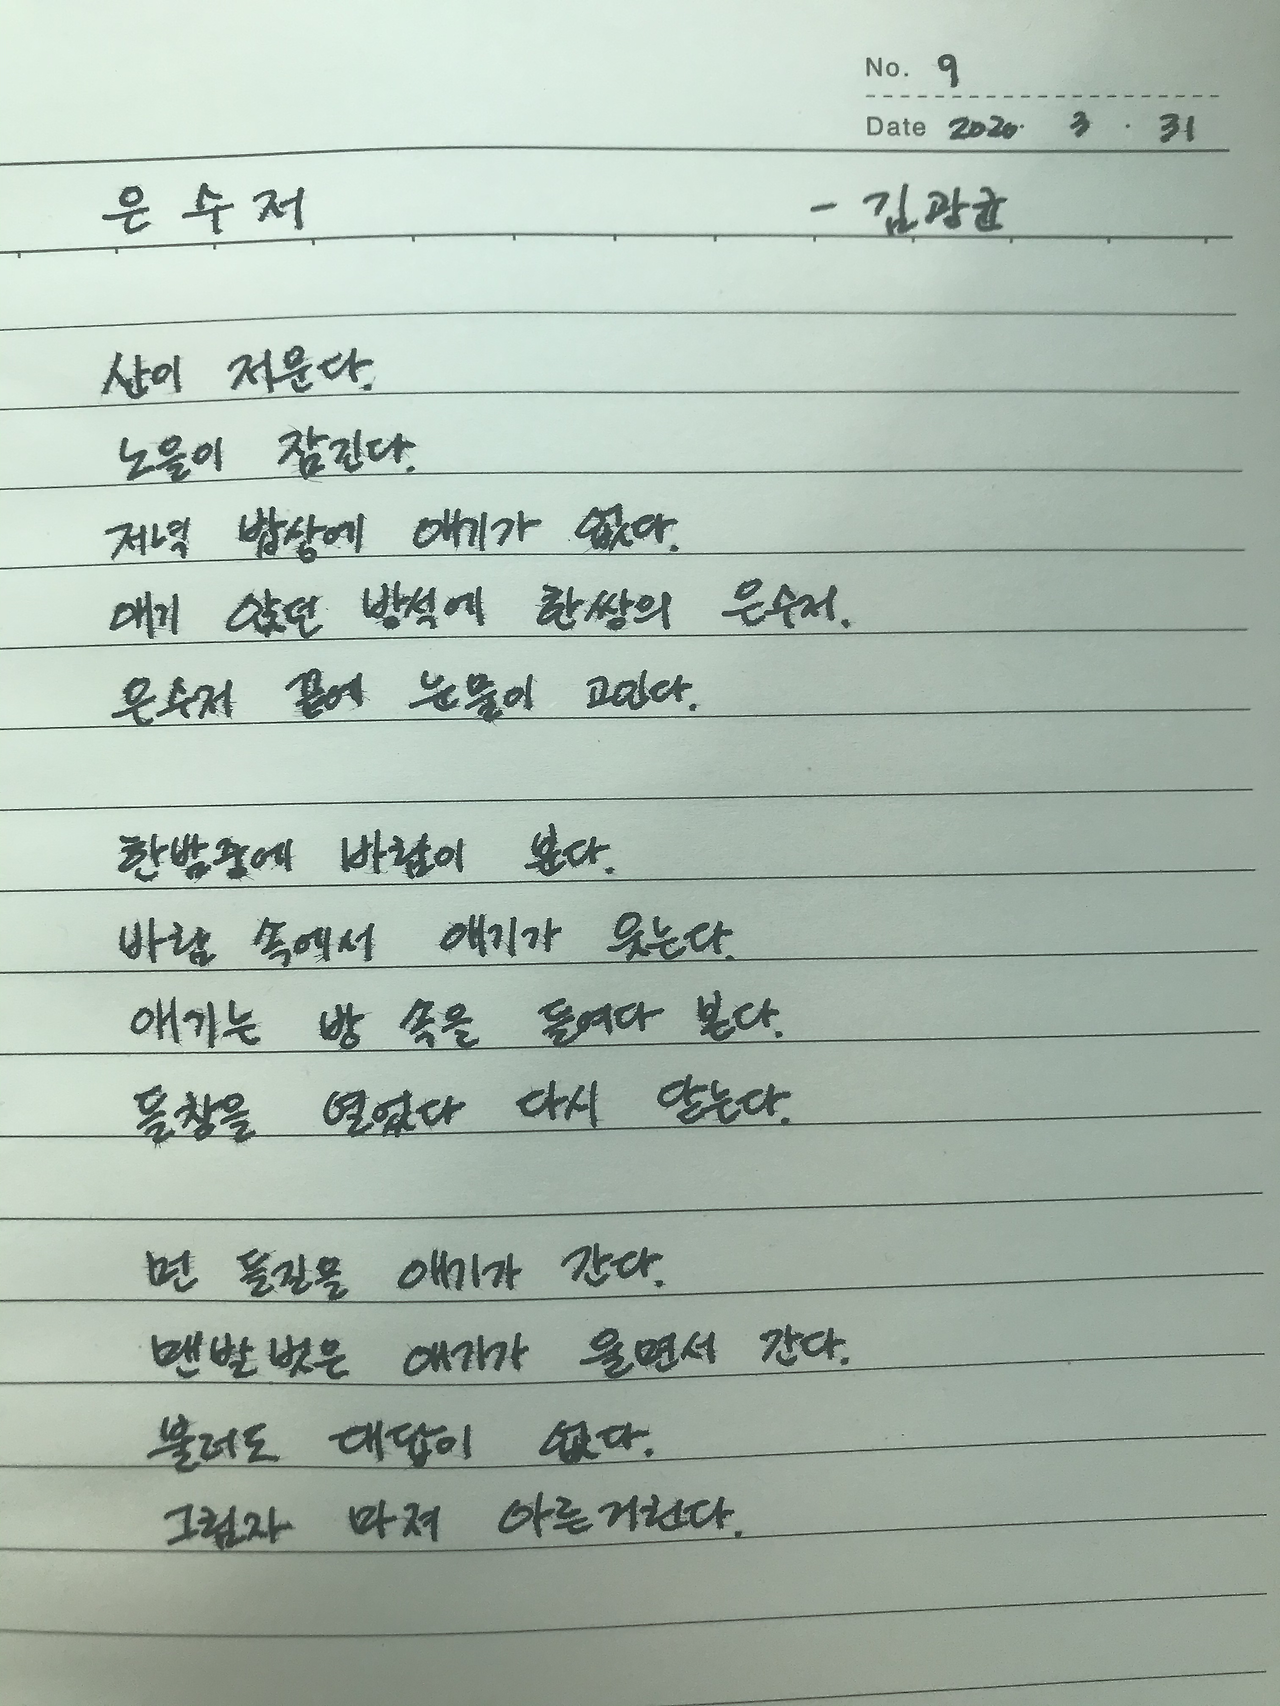 No. 9
Date 2020. 3 . 31
은 수 저 - 김광균
산이 저문다.
노을이 잠긴다.
저녁 밥상에 애기가 없다.
애기 앉던 방석에 한쌍의 은수저.
은수저 끝에 눈물이 고인다.
한밤중에 바람이 분다.
바람 속에서 애기가 웃는다.
애기는 방 속을 들여다 본다.
들창을 열었다 다시 닫는다.
먼 들길을 애기가 간다.
맨발벗은 애기가 울면서 간다.
불러도 대답이 없다.
그림자 마저 아른거린다.